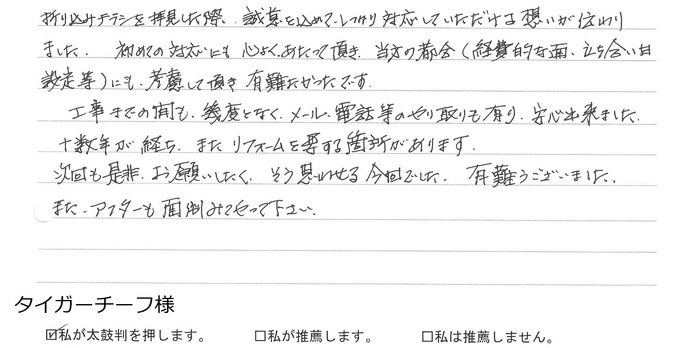 折り込みチラシを拝見した際、誠意を込めて、しっかり対応していただける想いが伝わり
ました。初めての対応にも心よくあたって頂き、当方の都合(経費的な面、立ち会い日
設定等)にも、考慮して頂き有難たかったです。
工事までの間も、幾度となく、メール、電話等のやり取りも有り、安心出来ました。
十数年が経ち、またリフォームを要する箇所があります。
次回も是非、お願いしたく、そう思わせる今回でした。有難うございました。
また、アフターも面倒みてやって下さい。
タイガーチーフ様
☑私が太鼓判を押します。 □私が推薦します。 □私は推薦しません。